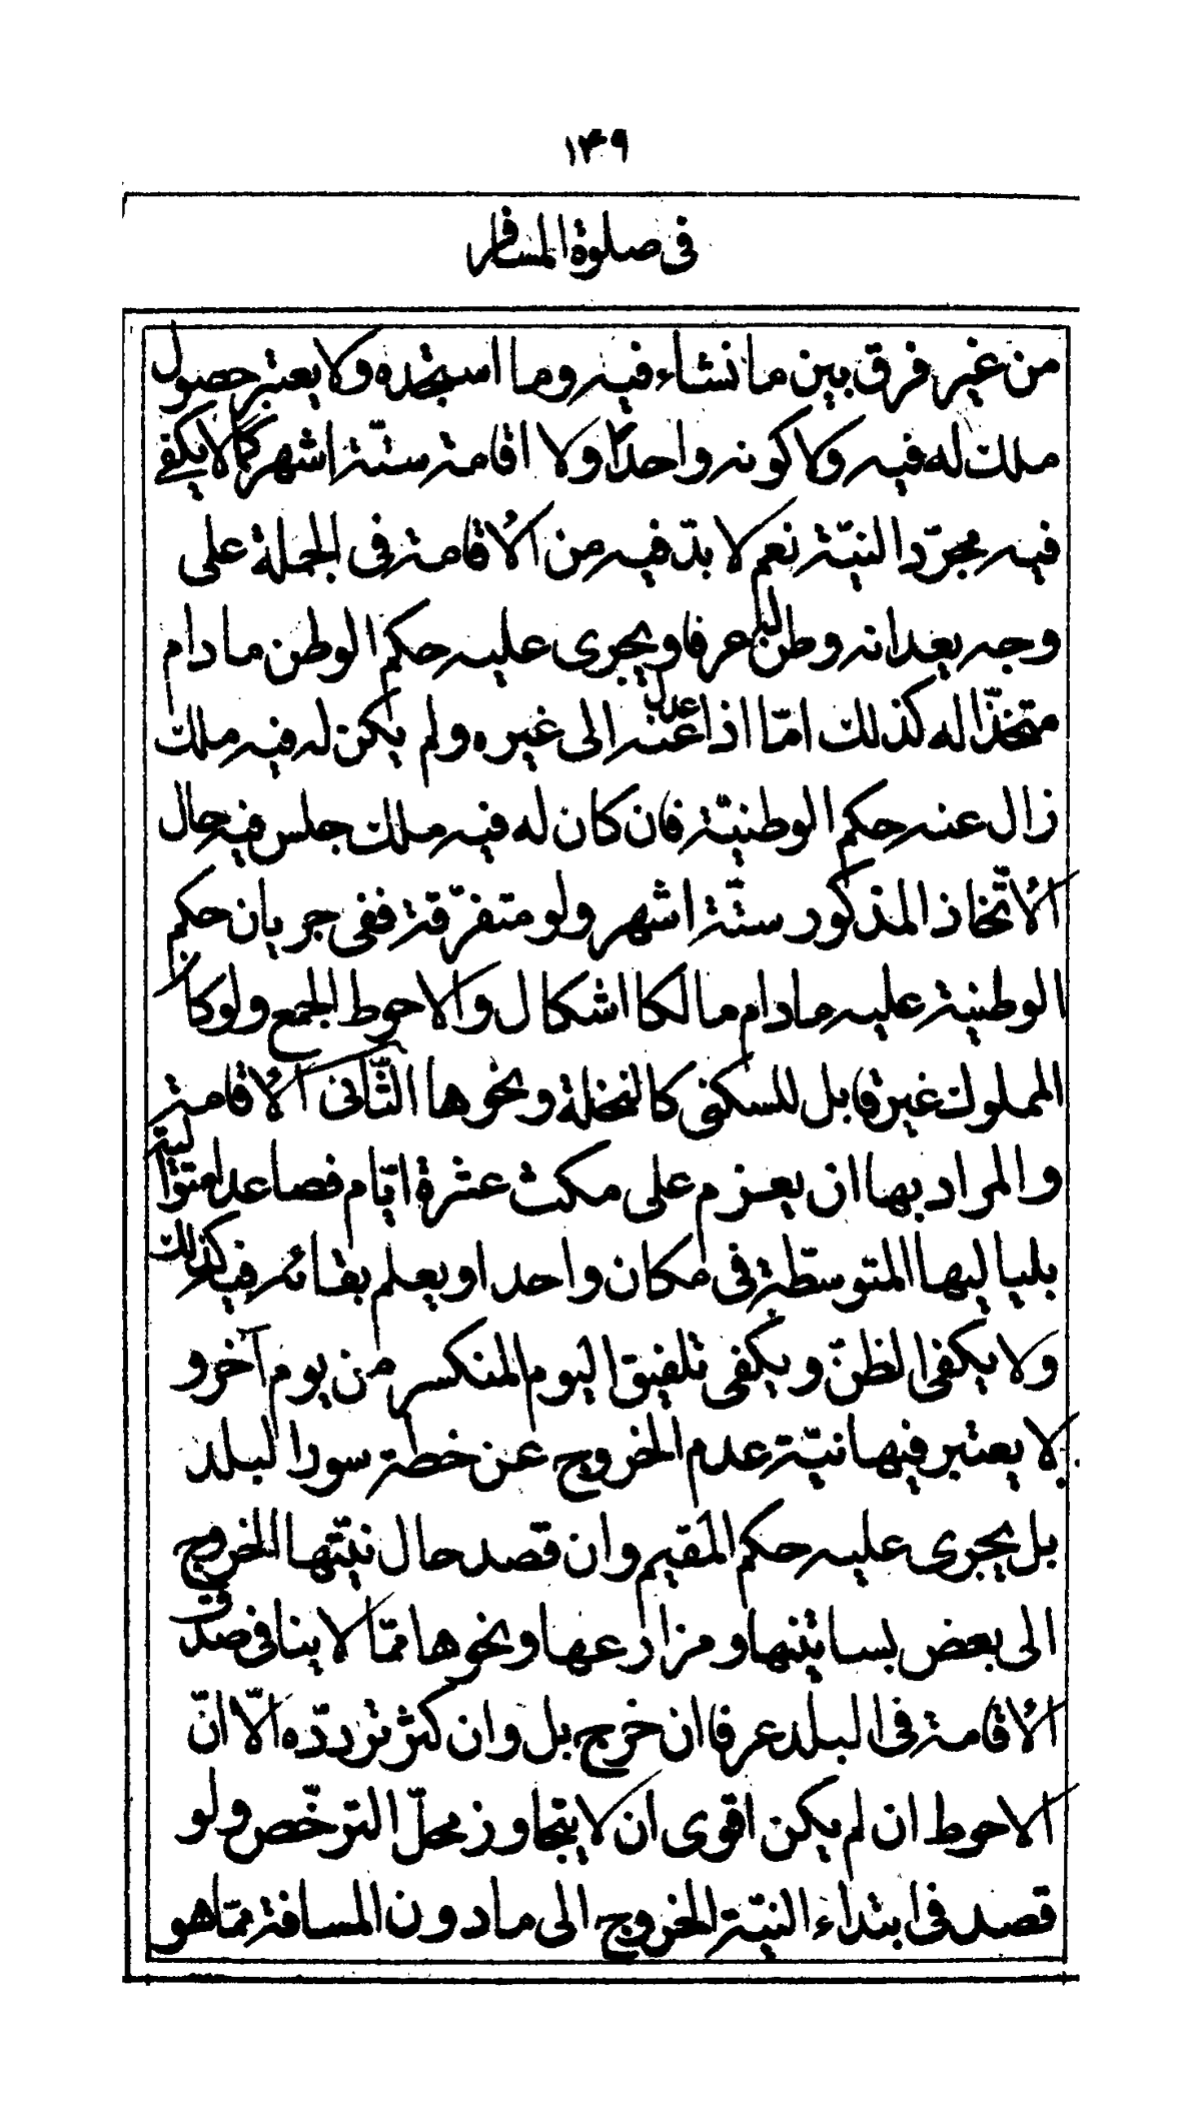 ۱۴۹
فی صلوة المسافر
من غیر فرق بین ما نشاء فیه و ما استجده ولا یعتبر حصول
ملك له فیه ولا کونه واحدًا ولا اقامة ستّة اشهر کما لا یکفی
فیه مجرّد النیّة نعم لا بدّ فیه من الاقامة فی الجملة علی
وجه یعد انه وطن له عرفا ویجری علیه حکم الوطن ما دام
متخذًا له کذلك امّا اذا عدل عنه الی غیره ولم یکن له فیه ملك
زال عنه حکم الوطنیّة فان کان له فیه ملك جلس فیه حال
الاتّخاذ المذکور ستّة اشهر ولو متفرّقة ففی جریان حکم
الوطنیة علیه ما دام مالکا اشکال والاحوط الجمع ولو کان
المملوك غیر قابل للسکنی کالنخلة ونحوها الثّانی الاقامة
والمراد بها ان یعزم علی مکث عشرة ایّام فصاعدا متوالیة
بلیالیها المتوسّطة فی مکان واحد او یعلم بقائه فیه کذلك
ولا یکفی الظنّ ویکفی تلفیق الیوم المنکسر من یوم آخر و
لا یعتبر فیها نیّة عدم الخروج عن خطة سور البلد
بل یجری علیه حکم المقیم وان قصد حال نیّتها الخروج
الی بعض بساتینها ومزارعها ونحوها ممّا لا ینافی صدق
الاقامة فی البلد عرفا ان خرج بل وان کثر تردّده الّا انّ
الاحوط ان لم یکن اقوی ان لا یتجاوز محلّ الترخّص ولو
قصد فی ابتداء النیّة الخروج الی ما دون المسافة ممّا هو